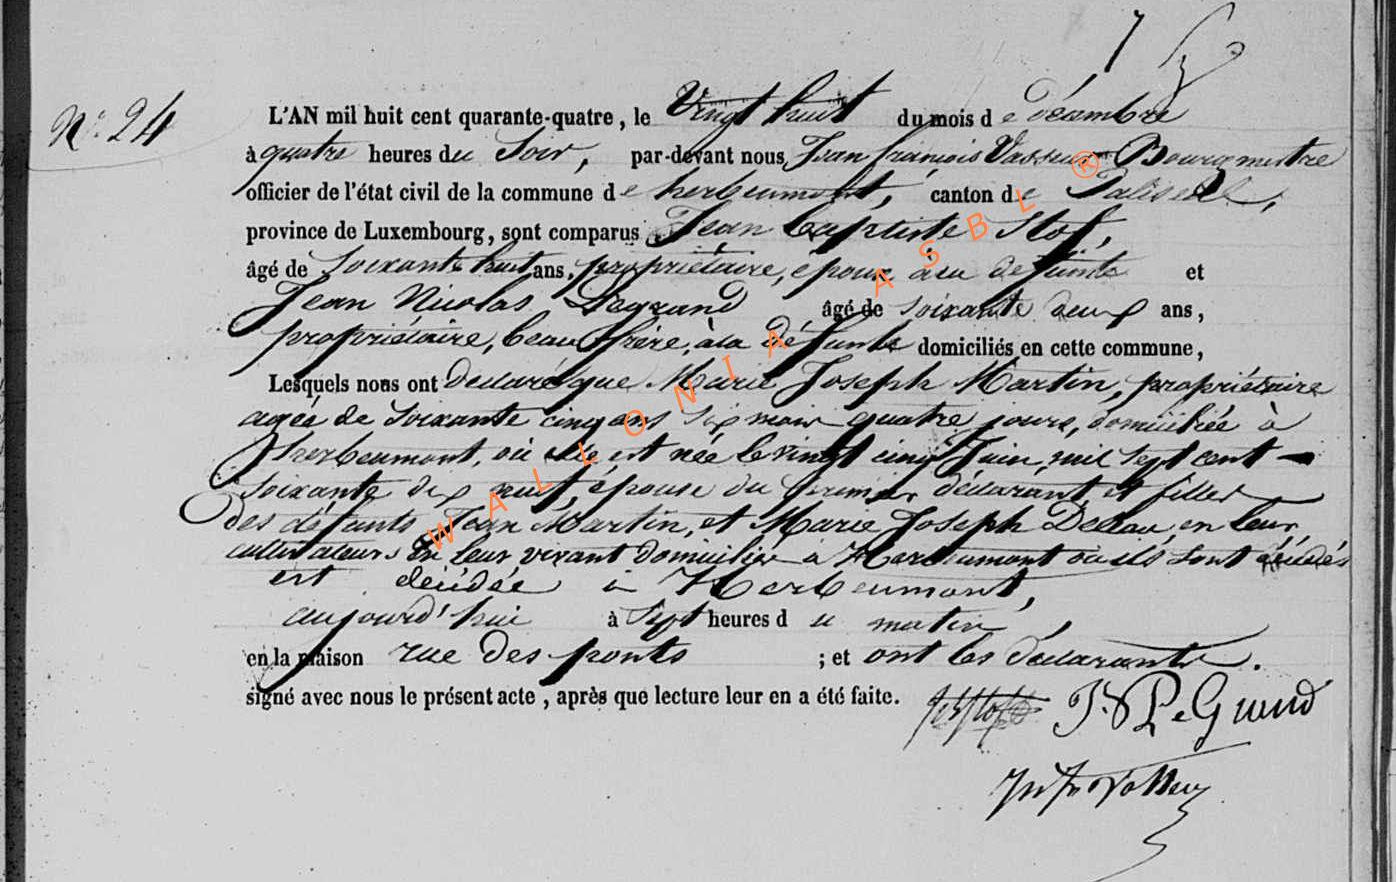 7
N° 24
L'AN mil huit cent quarante-quatre, le Vingt huit du mois de décembre
à quatre heures du Soir, par-devant nous, Jean françois Vasseur Bourgmestre
officier de l'état civil de la commune de herbeumont, canton de Paliseul,
province de Luxembourg, sont comparus Jean Baptiste Slof,
âgé de Soixante huit ans, propriétaire, époux à la defunte et
Jean Nicolas Legrand âgé de soixante deux ans,
propriétaire, beau frère, à la défunte domiciliés en cette commune,
Lesquels nous ont declaré que Marie Joseph Martin, propriétaire
agée de Soixante cinq ans six mois quatre jours, domiciliée à
herbeumont, où elle est née le vingt cinq Juin, mil sept cent –
soixante dix neuf, épouse du premier déclarant, et fille
des défunts Jean Martin, et Marie Joseph en leur
cultivateurs en leur vivant domiciliés à Herbeumont où ils sont décédés
est décédée à Herbeumont,
aujourd'hui à Sept heures du matin,
en la maison rue des ponts ; et ont les déclarants.
signé avec nous le présent acte, après que lecture leur en a été faite.
J N LeGrand
WALLONIA ASBL ®